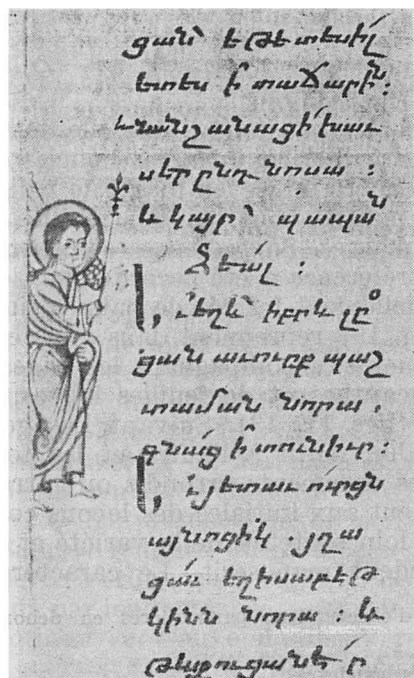 ցան՝ եթէ տեսիլ
ետես ի տաճարին:
և նա նշանացի խաւ
սէր ընդ նոսա :
և կայր՝ պապան
ձեալ :
Եւ եղև՝ իբրև լը
ցան աւուրք պաշ
տաման նորա .
գնաց ի տուն իւր :
Եւ յետ աւուրցն
այնոցիկ . յղա
ցաւ եղիսաբեթ
կինն նորա : և
թաքուցանէր